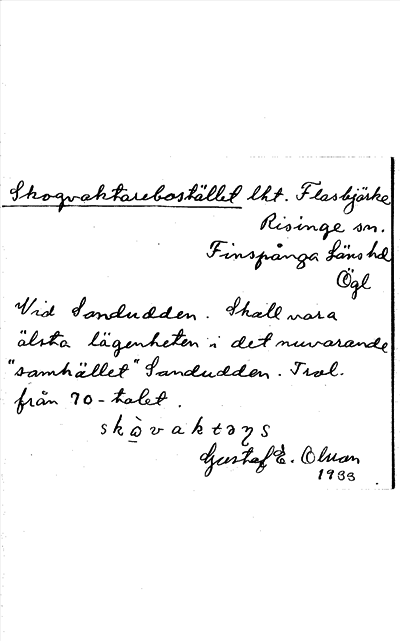 Skogvaktarebostället lht. Flasbjörke
Risinge sn.
Finspånga Läns hd
Ögl
Vid Sandudden. Skall vara
älsta lägenheten i det nuvarande
"samhället" Sandudden. Trol.
från 70-talet.
skòvaktəɳs
Gustaf E. Olson
1933